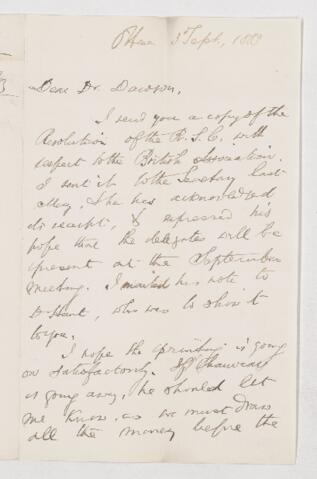 3 Sept, 188
Dear Dr. Dawson,
I send you a copy of the
Resolution of the R.S.C. with
respect to the British Association.
I sent it to the Secretary last
May, & he has acknowledged
its receipt, & expressed his
hope that the delegates will be
present at the September
meeting. I mailed his note to
who was to show it
to you.
I hope the printing is going
on satisfactorily. If Chauveau
is going away, he should let
me know, as we must draw
all the money before the